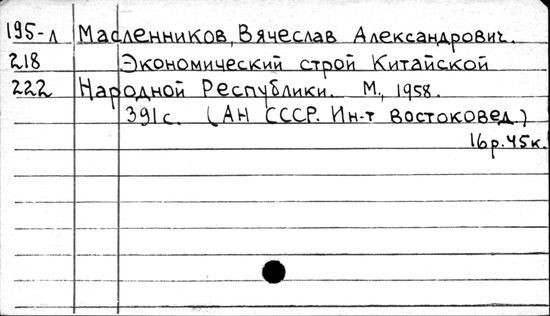 195-л Масленников, Вячеслав Александрович.
218 Экономический строй Китайской
222 Народной Республики. М., 1958.
391с. (АН СССР. Ин-т востоковед.)
16р.45к.